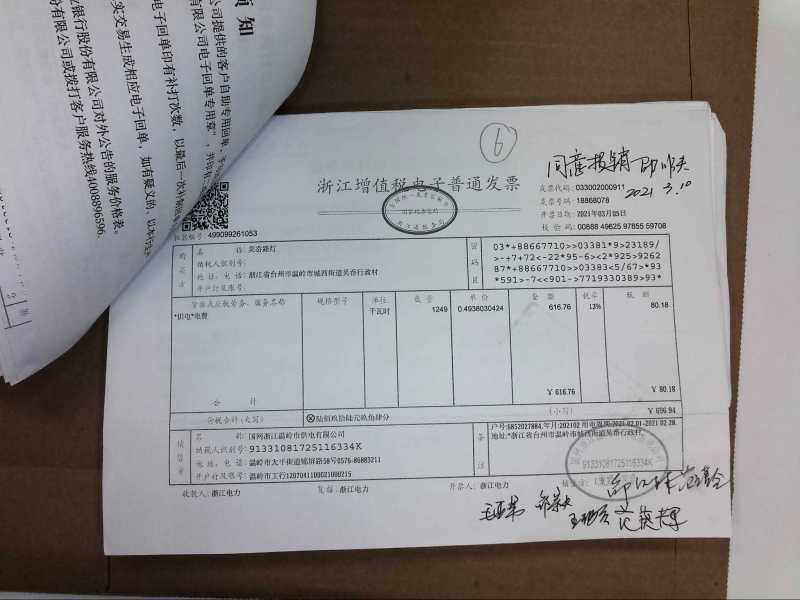 须知
公司提供的客户自助专用回单
有限公司电子回单专用章"，并印有
电子回单印有补打次数，以最后一次
实交易生成相应电子回单，如有疑义的，以本行
银行股份有限公司对外公告的服务价格表。
份有限公司或拨打客户服务热线4008896596.
⑥
同意报销
2021 3.10
浙江增值税电子普通发票
发票代码: 033002000911
发票号码: 18868078
开票日期: 2021年03月05日
校验码: 00888 49625 97855 59708
机器编号: 499099261053
购买方
名 称: 吴岙路灯
纳税人识别号:
地址、电话: 浙江省台州市温岭市城西街道吴岙行政村
开户行及账号:
密码区
03*+88667710>>03381*9>23189/
>-+7+72<-22*95-6><2*925>9262
87*+88667710>>03383<5/67>*93
*591>-7<<901->7719330389>93*
货物或应税劳务、服务名称 规格型号 单位 数量 单价 金额 税率 税额
*供电*电费 千瓦时 1249 0.4938030424 616.76 13% 80.18
合 计 ¥ 616.76 ¥ 80.18
价税合计(大写) ⊗陆佰玖拾陆元玖角肆分 (小写) ¥ 696.94
销售方
名 称: 国网浙江温岭市供电有限公司
纳税人识别号: 91331081725116334K
地址、电话: 温岭市太平街道锦屏路58号0576-86883211
开户行及账号: 温岭市工行1207041109021000215
备注
户号:6852027884,年月:202102 用电周期:2021.02.01-2021.02.28.
地址:*浙江省台州市温岭市城西街道吴岙行政村.
91331081725116334K
收款人: 浙江电力 复核: 浙江电力 开票人: 浙江电力